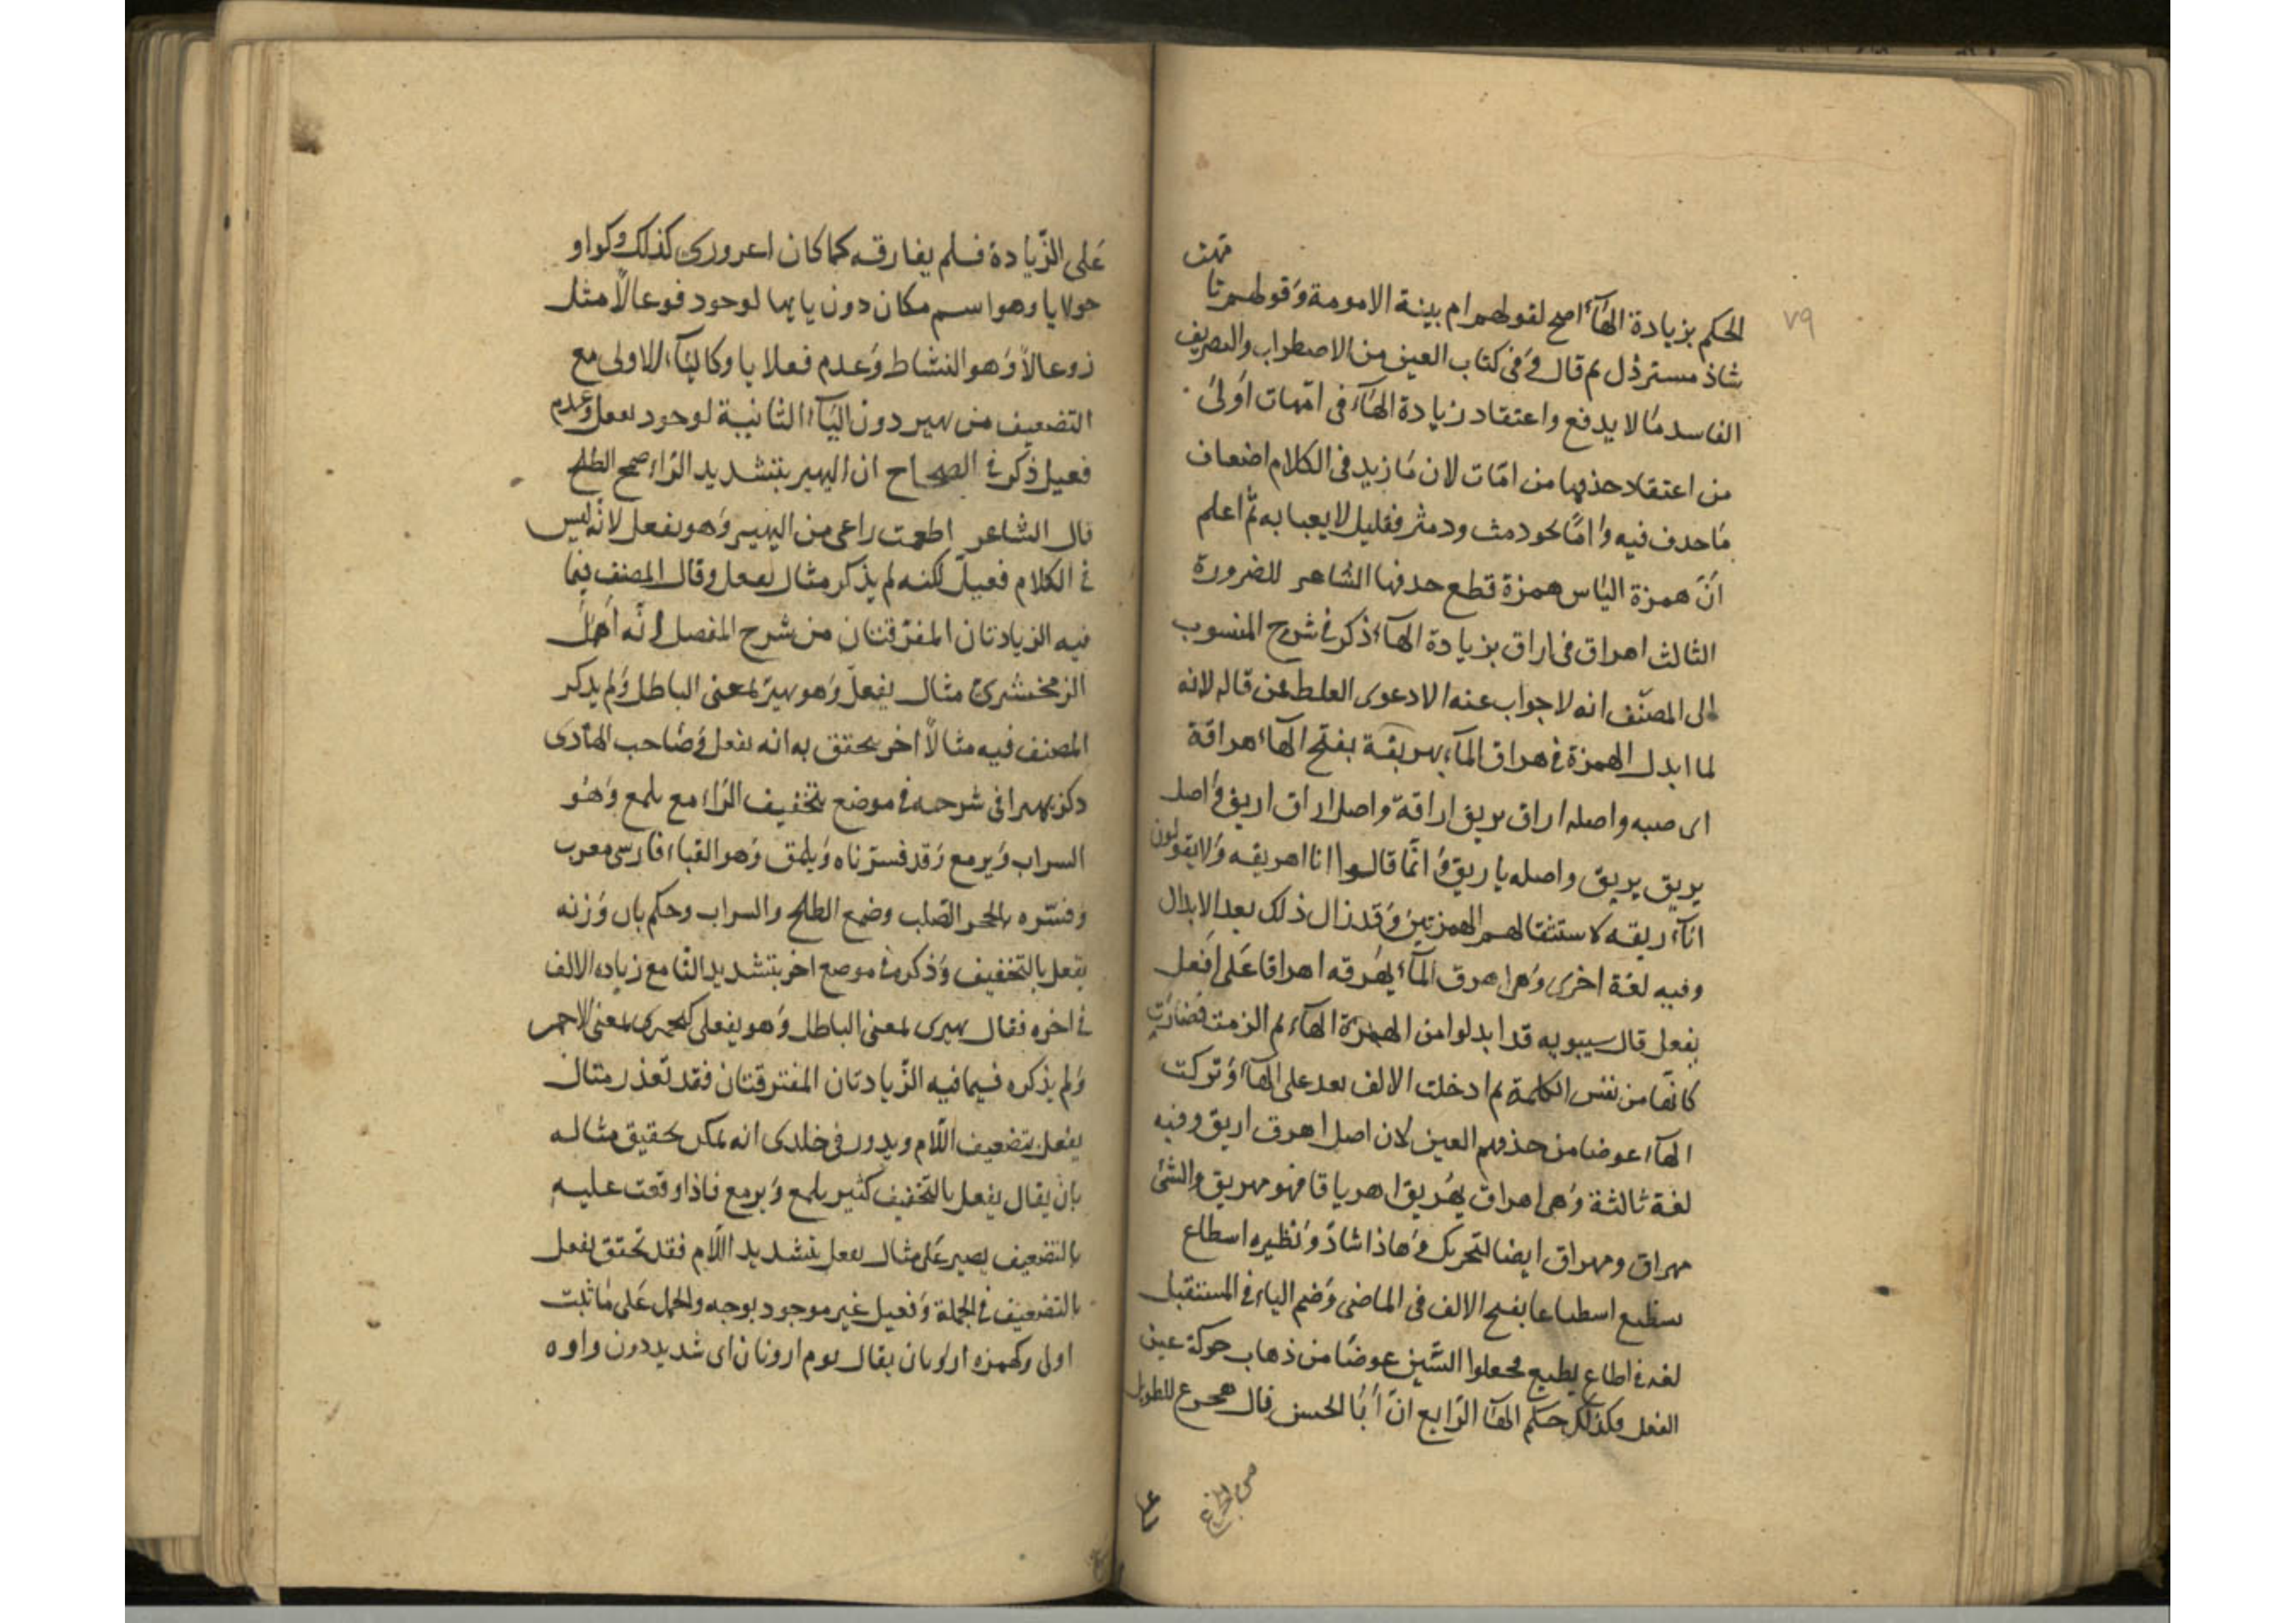 ٧٩
الحكم بزيادة الهآء اصح لقولهم ام بينة الامومة وقولهم تا
مهت
شاذ مسترذل ثم قال وفى كتاب العين من الاضطراب والتصريف
الفاسد ما لا يدفع واعتقاد زيادة الهآء فى امهات اولى
من اعتقاد حذفها من امات لان ما زيد فى الكلام اضعاف
ما حذف فيه واما نحو دمث ودمثر فقليل لا يعبا به ثم اعلم
ان همزة الياس همزة قطع حذفها الشاعر للضرورة
الثالث اهراق فى اراق بزيادة الهآء ذكر فى شرح المنسوب
الى المصنف انه لا جواب عنه الا دعوى الغلط عن قاله لانه
لما ابدل الهمزة فى هراق المآء يهريقة بفتح الهآء هراقة
اى صبه واصله اراق يريق اراقة واصل اراق اريق واصل
يريق يريق واصله ياريق وانما قالوا انا اهريقه ولا يقولون
انآ اريقه لاستثقالهم الهمزتين وقد زال ذلك بعد الابدال
وفيه لغة اخرى وهى اهرق المآء يهرقه اهراقا على افعل
يفعل قال سيبويه قد ابدلوا من الهمزة الهآء ثم الزمت فصارت
كانها من نفس الكلمة ثم ادخلت الالف بعد على الهآء وتركت
الهآء عوضا من حذفهم العين لان اصل اهرق اريق وفيه
لغة ثالثة وهى اهراق يهريق اهرياقا فهو مهريق والشئ
مهراق ومهراق ايضا لتحريك وهاذا شاذ ونظيره اسطاع
يسطيع اسطاعا بفتح الالف فى الماضى وضم الياء فى المستقبل
لغة فى اطاع يطيع فجعلوا السين عوضا من ذهاب حركة عين
الفعل وكذلك حكم الهآء الرابع ان ابا الحسن قال هجرع للطويل
على الزيادة فلم يفارقه كما كان اعرورى كذلك وكواو
حولايا وهو اسم مكان دون يايها لوجود فوعالا مثل
زوعالا وهو النشاط وعدم فعلايا وكاليآء الاولى مع
التضعيف من يهير دون اليآء الثانية لوجود يفعل وعدم
فعيل ذكر فى الصحاح ان اليهير بتشديد الراء صمغ الطلح
قال الشاعر اطعمت راعى من اليهير وهو يفعل لانه ليس
فى الكلام فعيل لكنه لم يذكر مثال يفعل وقال المصنف فيما
فيه الزيادتان المفترقتان من شرح المفصل انه اهمل
الزمخشرى مثال يفعل وهو يهير بمعنى الباطل ولم يذكر
المصنف فيه مثالا اخر يحقق به انه يفعل وصاحب الهادى
ذكر يهيرا فى شرحه فى موضع بتخفيف الراء مع يلمع وهو
السراب ويرمع وقد فسرناه ويلمق وهو القباء فارسى معرب
وفسره بالحجر الصلب وصمغ الطلح والسراب وحكم بان وزنه
يفعل بالتخفيف وذكره فى موضع اخر بتشديد الرا مع زياده الالف
فى اخره فقال يهيرى بمعنى الباطل وهو يفعلى كيحمرى بمعنى الاحمر
ولم يذكره فيما فيه الزيادتان المفترقتان فقد تعذر مثال
يفعل بتضعيف اللام ويدور فى خلدى انه يمكن تحقيق مثاله
بان يقال يفعل بالتخفيف كثير يلمع ويرمع فاذا وقعت عليه
بالتضعيف يصير على مثال يفعل بتشديد اللام فقد تحقق يفعل
بالتضعيف فى الجملة وفعيل غير موجود بوجه والحمل على ما ثبت
اولى وكهمزه ارونان يقال يوم ارونان اى شديد دون واوه